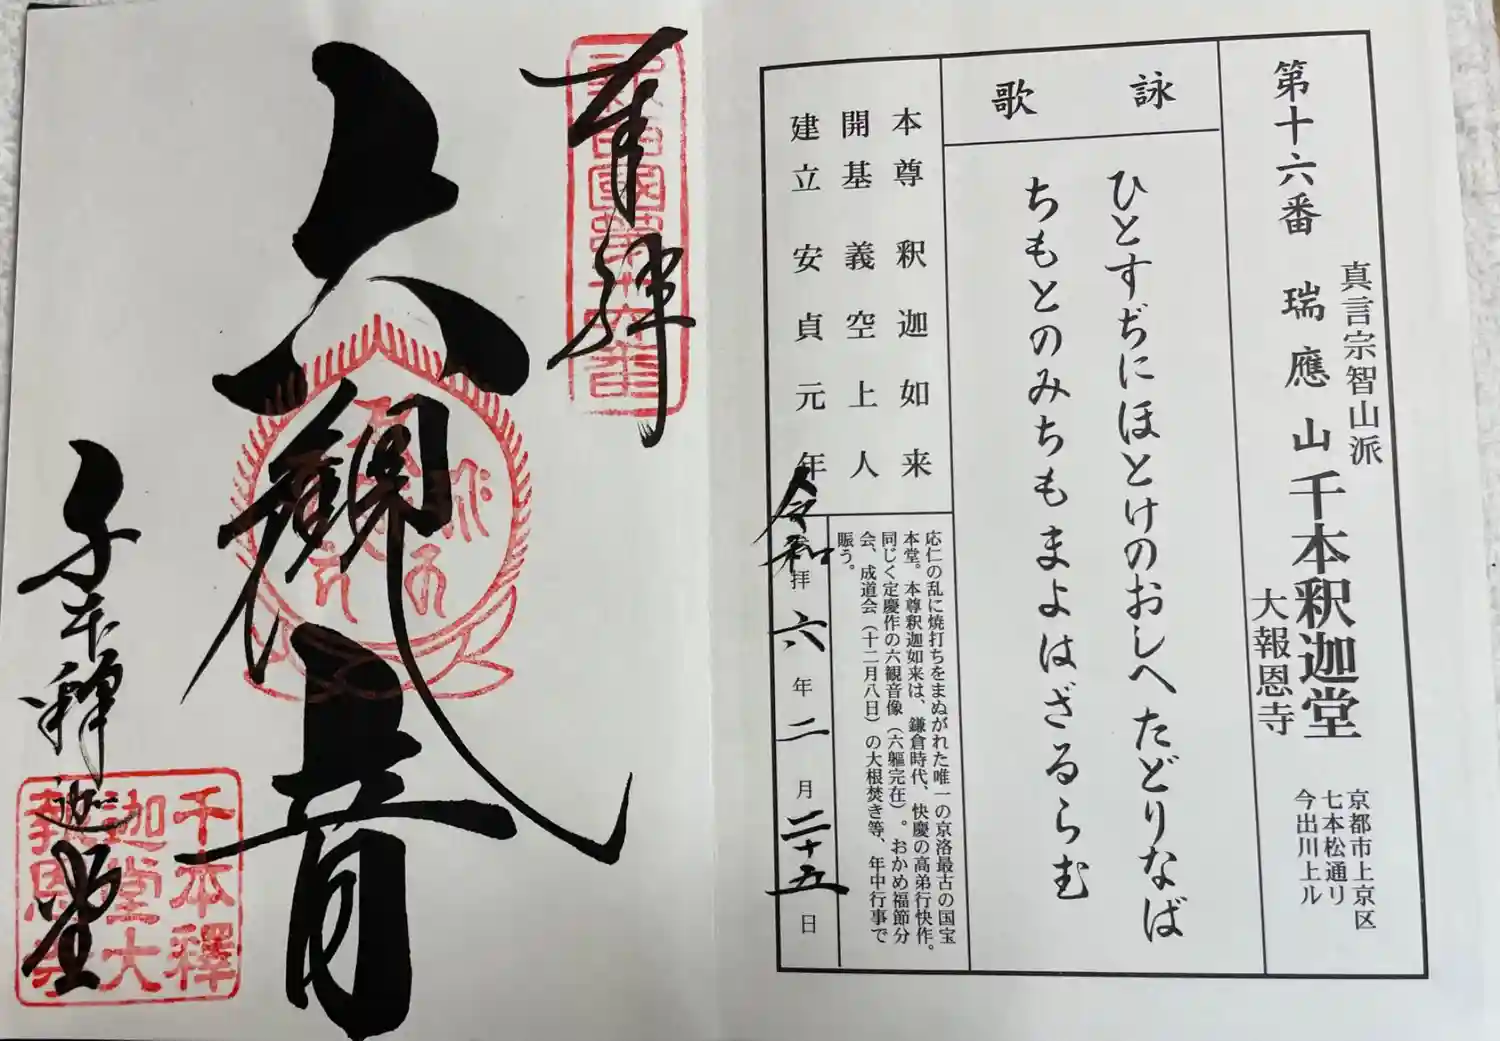 第十六番 瑞應山千本釈迦堂
真言宗智山派
大報恩寺
京都市上京区
七本松通リ
今出川上ル
詠歌
ひとすぢにほとけのおしへたどりなば
ちもとのみちもまよはざるらむ
本尊 釈迦如来
開基 義空上人
建立 安貞元年
応仁の乱に焼打ちをまぬがれた唯一の京洛最古の国宝
本堂。本尊釈迦如来は、鎌倉時代、快慶の高弟行快作。
同じく定慶作の六観音像（六軀完在）。おかめ福節分
会、成道会（十二月八日）の大根焚き等、年中行事で
賑う。
令和 拝 六年二月二十五日
奉拝
六観音
千本釋迦堂
千本釋
迦堂大
報恩寺